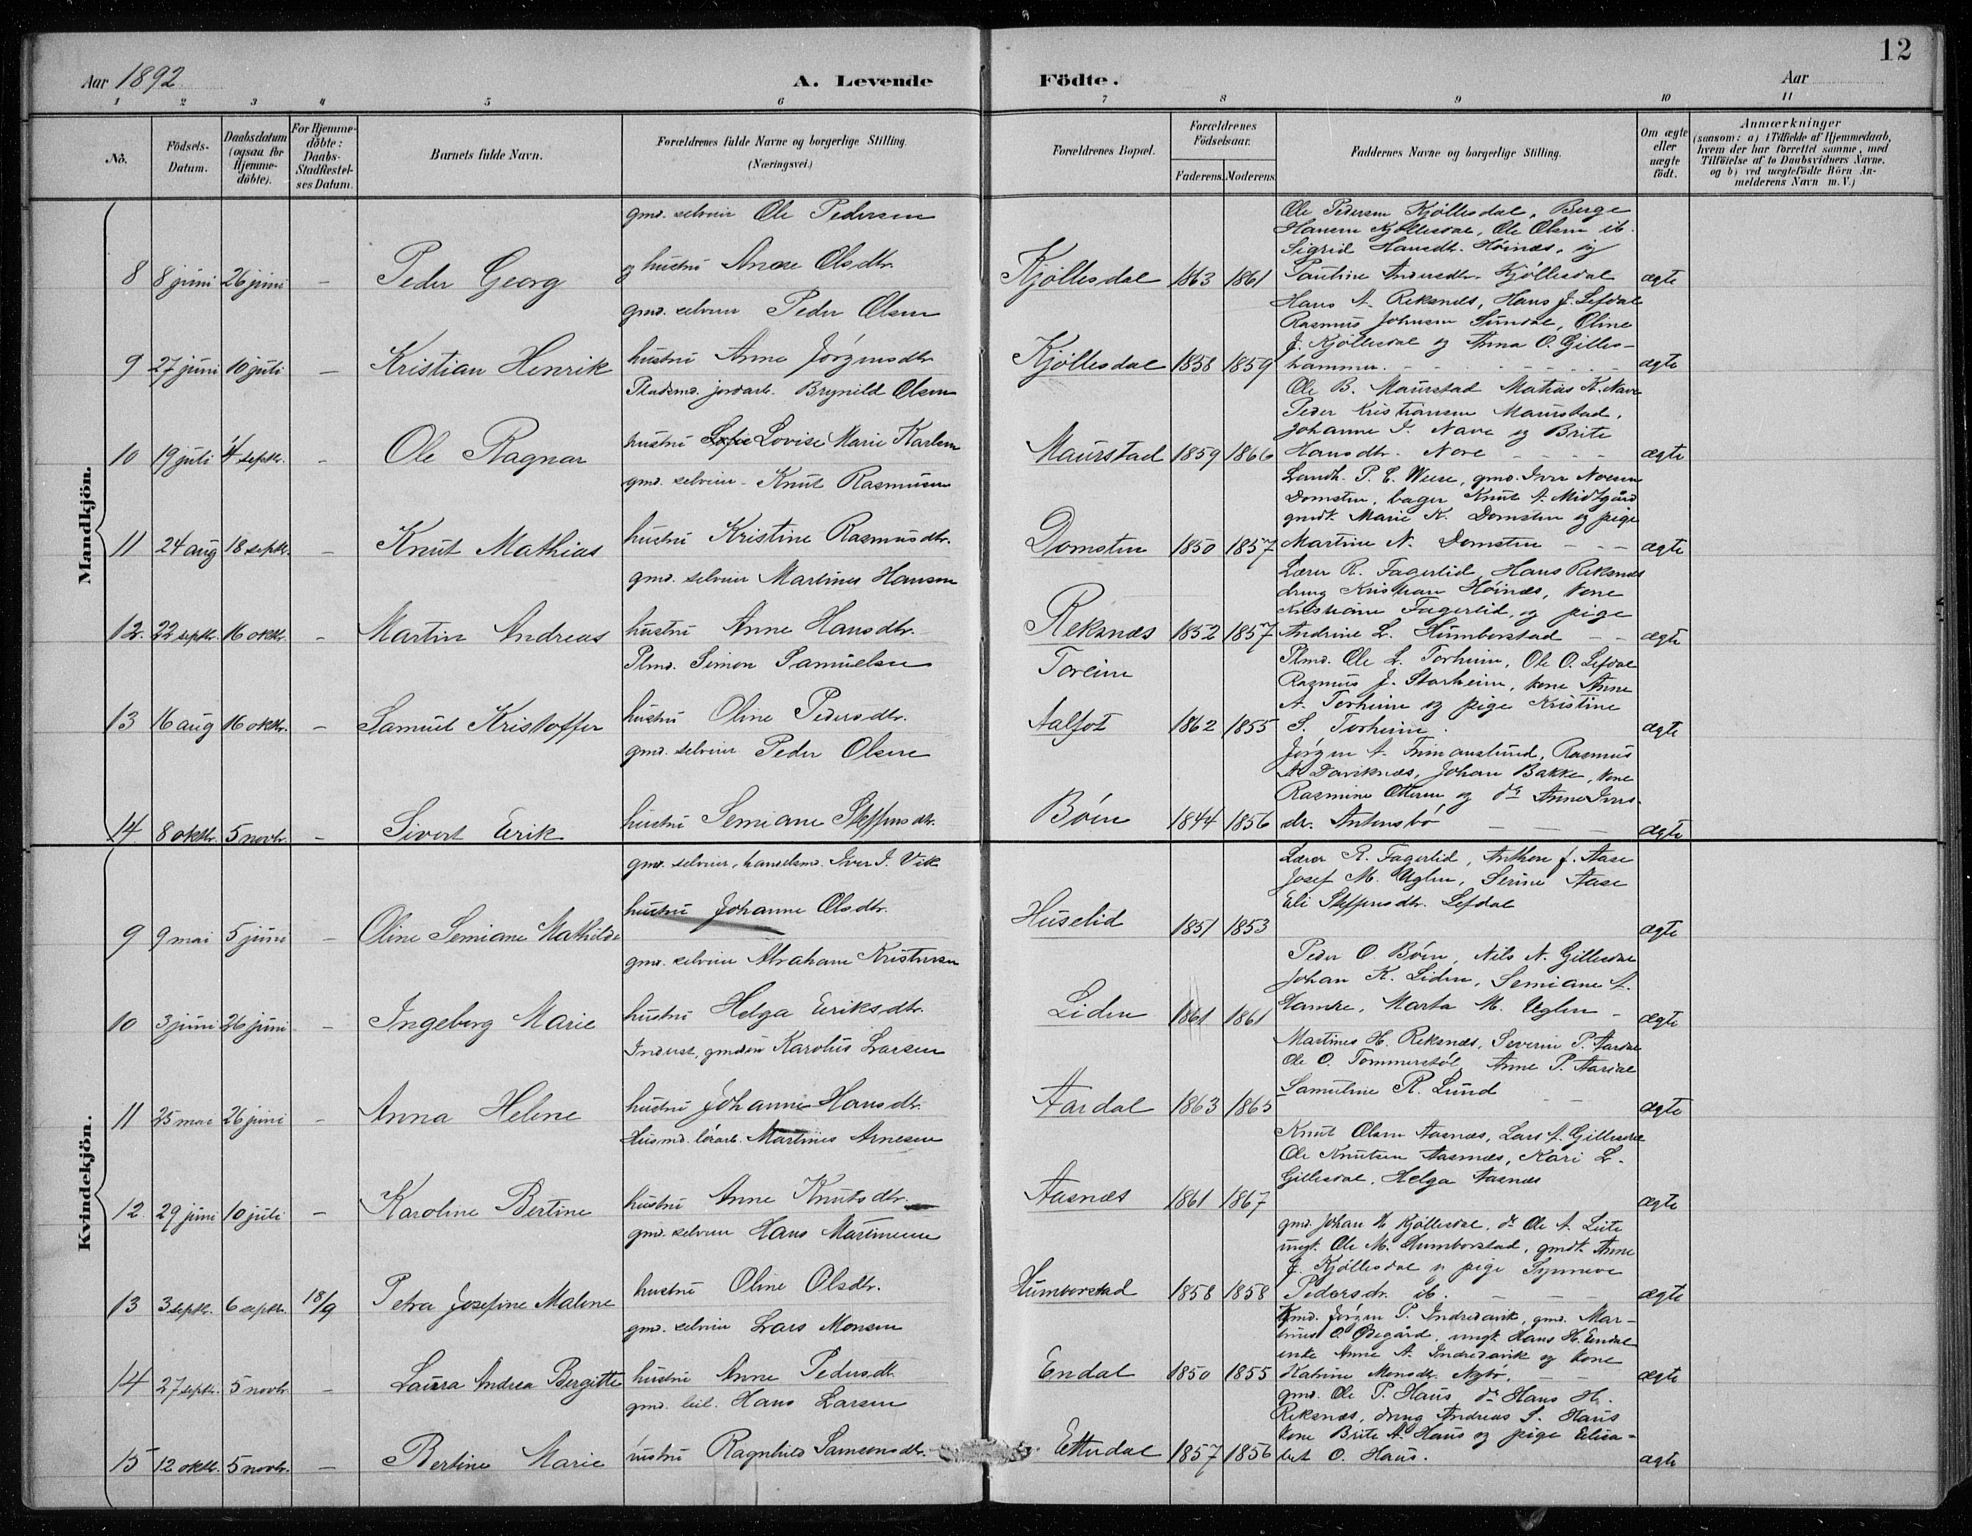 12
Aar 1892
A. Levende Födte.
Aar
1 2 3 4 5 6 7 8 9 10 11
No.
Födsels-Datum.
Daabsdatum (ogsaa for Hjemme-döbte).
For Hjemme-döbte: Daabs-Stadfæstel-ses Datum.
Barnets fulde Navn.
Forældrenes fulde Navne og borgerlige Stilling. (Næringsvei.)
Forældrenes Bopæl.
Forældrenes Födselsaar.
Faderens. Moderens.
Faddernes Navne og borgerlige Stilling.
Om ægte eller uægte födt.
Anmærkninger
(saasom: a) i Tilfælde af Hjemmedaab,
hvem der har forrettet samme, med
Tilföielse af to Daabsvidners Navne,
og b) ved uægtefödte Börn An-
melderens Navn m. V.)
Mandkjön.
gmd. selveier Ole Pedersen
8 8 juni 26 juni – Peder Georg
og hustru Anne Olsdtr.
Kjøllesdal 1863 1861
Ole Pedersen Kjøllesdal, Berge
Hansen Kjøllesdal, Ole Olsen ib.
Sigrid Hansdtr. Høinæs, og
Pauline Andersdtr. Kjøllesdal
ægte
gmd. selveier Peder Olsen
9 27 juni 10 juli – Kristian Henrik
hustru Anne Jørgensdtr.
Kjøllesdal 1858 1859
Hans A. Reksnæs, Hans J. Lefdal
Rasmus Johnsen Sundal, Oline
J. Kjøllesdal og Anna O. Gilles-
hammer.
ægte
Pladsmd. jordarb. Brynild Olsen
10 19 juli 4 septbr. – Ole Ragnar
hustru Lovise Marie Karlsen
Maurstad 1859 1866
Ole B. Maurstad Matias K. Nave
Peder Kristiansen Maurstad,
Johanne J. Nave og Brite
Hansdtr. Nore
ægte
gmd. selveier Knut Rasmusen
11 24 aug 18 septbr. – Knut Mathias
hustru Kristine Rasmusdtr.
Domsten 1850 1857
Landh. P. E. Weese, gmd. Iver Noesen
Domsten, bager Knut A. Midtgård
gmdt. Marie K. Domsten og pige
Martine N. Domsten
ægte
gmd. selveier Martines Hansen
12. 22 septbr. 16 oktbr. – Martin Andreas
hustru Anne Hansdtr.
Reksnæs 1852 1857
Lærer R. Fagerlid, Hans Reksnæs
dreng Kristian Høinæs, kone
Kristiane Fagerlid, og pige
Andrine L. Humborstad
ægte
Plmd. Simon Samuelsen
13 16 aug 16 oktbr. – Samuel Kristoffer
hustru Oline Pedersdtr.
Toreim
Aalfot 1862 1855
Plmd. Ole L. Torheim, Ole O. Lefdal
Rasmus J. Starheim, kone Anne
A. Torheim og pige Kristine
S. Torheim.
ægte
gmd. selveier Peder Olsen
14 8 oktbr. 5 novbr. – Sivert Eirik
hustru Semiane Steffensdtr.
Bøen 1844 1856
Jørgen A. Rasmus
A. Daviknæs, Johan Bakke, kone
Rasmine Otteren og do Anne Ivers-
dr. Antensbø
ægte
Kvindekjön.
gmd. selveier, handelsmd. Iver I. Vik
9 9 mai 5 juni – Oline Semiane Mathilde
hustru Johanne Olsdtr.
Huselid 1851 1853
Lærer R. Fagerlid, Anthon J. Aase
Josef M. Uglen, Serine Aase
Eli Steffensdtr. Lefdal
ægte
gmd. selveier Abraham Kristensen
10 3 juni 26 juni – Ingeborg Marie
hustru Helga Eriksdtr.
Liden 1861 1861
Peder O. Bøen, Nils N. Gillesdal
Johan K. Liden, Semiane A.
Hamre, Marta M. Uglen
ægte
Inderst, gmdsøn Karolus Larsen
11 25 mai 26 juni – Anna Helene
hustru Johanne Hansdtr.
Aardal 1863 1865
Martines H. Reksnæs, Severin P. Aardal
Ole O. Tommerstøl, Anne P. Aardal
Samuline R. Lund
ægte
Husmd. Martines Arnesen
12. 29 juni 10 juli – Karoline Bertine
hustru Anne Knutsdtr.
Aasnæs 1861 1867
Knut Olsen Aasnæs, Lars A. Gillesdal
Ole Knutsen Aasnæs, Kari L.
Gillesdal, Helga Aasnæs
ægte
gmd. selveier Hans Martinusen
13 3 septbr. 6 septbr. 18/9 Petra Josefine Malene
hustru Oline Olsdtr.
Humborstad 1858 1858
gmd. Johan H. Kjøllesdal, do Ole A. Leite
ungk. Ole M. Humborstad, gmdk. Anne
J. Kjøllesdal og pige Synneve
Pedersdr. ib.
ægte
gmd. selveier Lars Monsen
14 27 septbr. 5 novbr. – Laura Andrea Bergitte
hustru Anne Pedersdtr.
Endal 1850 1855
Gmd. Jørgen P. Indredavik, gmd. Mar-
tinus O. Ødegård, ungk. Hans H. Endal
enke Anne A. Indredavik og kone
Katrine Monsdtr. Nybø.
ægte
gmd. leil. Hans Larsen
15 12 oktbr. 5 novbr. – Bertine Marie
hustru Ragnhild Samsonsdtr.
Ettudal 1857 1856
gmd. Ole P. Haus do Hans H.
Reksnæs, dreng Andreas S. Haus
kone Brite A. Haus og pige Elisa-
bet O. Haus.
ægte